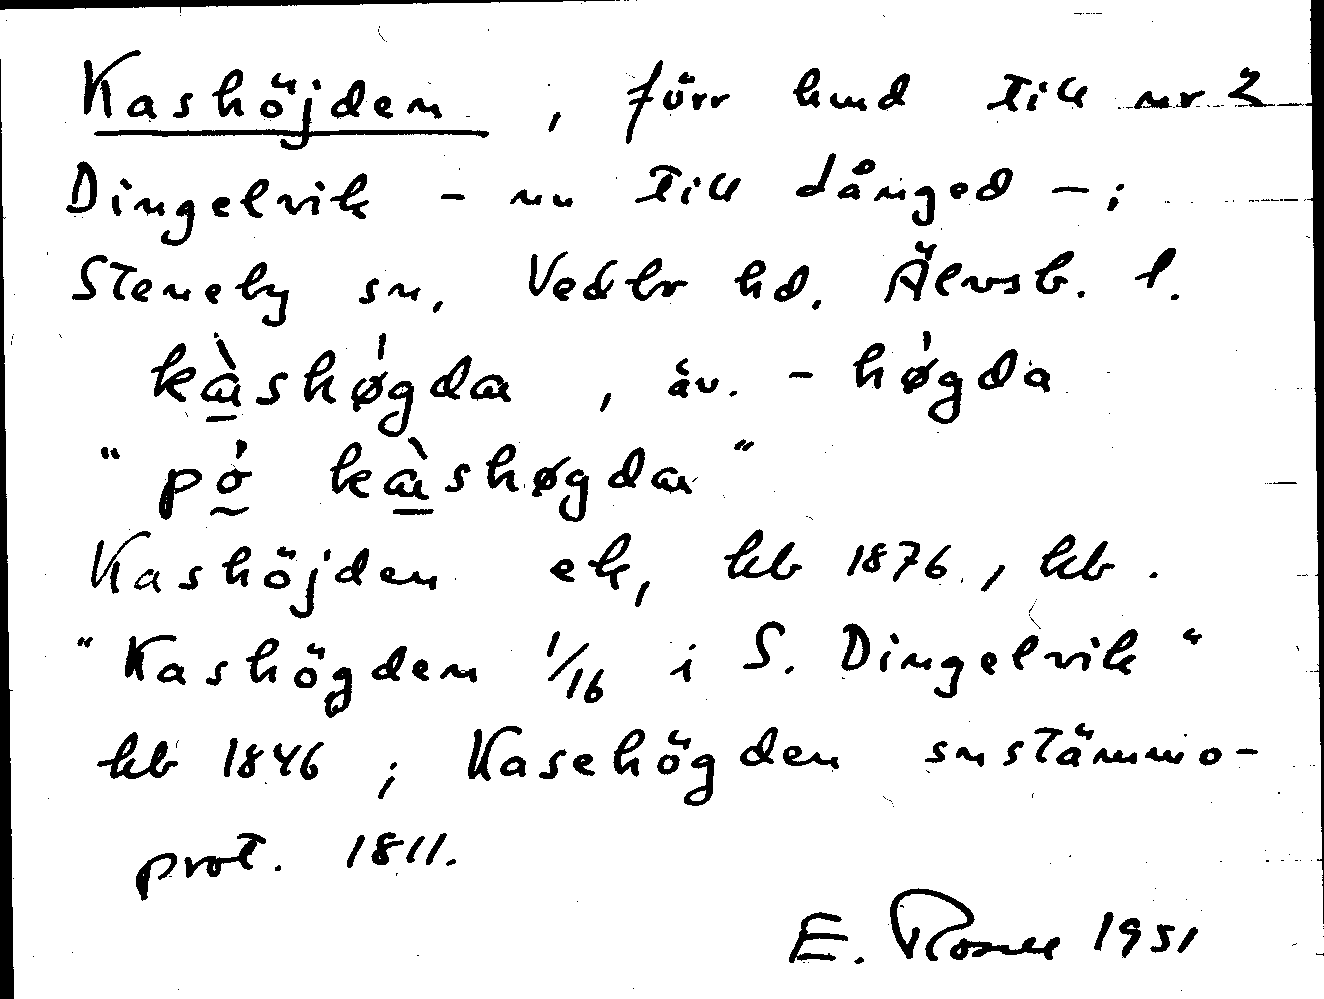 Kashöjden, förr hmd till nr 2
Dingelvik - nu till Långed -;
Steneby sn, Vedbo hd. Älvsb. l.
kà̱shǿgda, äv. - hǿgda
"pó̰ kà̱shøgda"
Kashöjden ek, kb 1876, kb.
"Kashögden 1/16 i S. Dingelvik"
kb 1846; Kasehögden snstämmo-
prot. 1811.
E. 1951